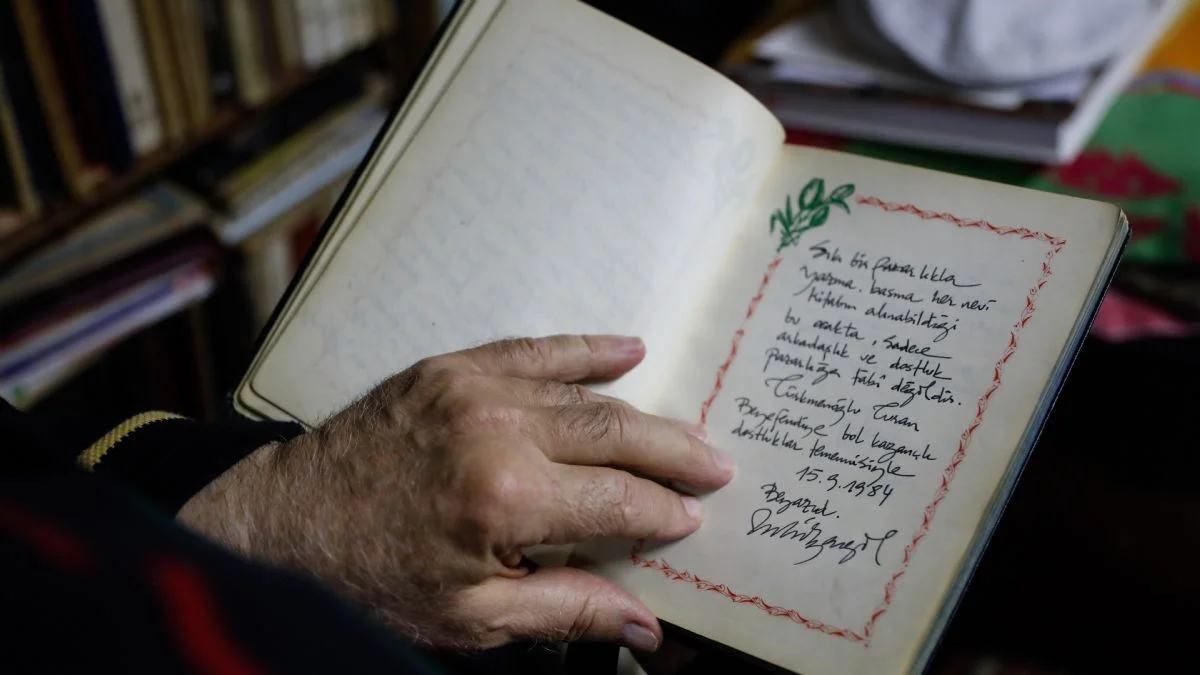 Sıkı bir pazarlıkla
yazma, basma her nevi
kitabın alınabildiği
bu sokakta, sadece
arkadaşlık ve dostluk
pazarlığa tâbi değildir.
Türkmenoğlu Turan
Beyefendiye bol kazançlı
dostluklar temennisiyle
15.9.1984
Beyazıd.